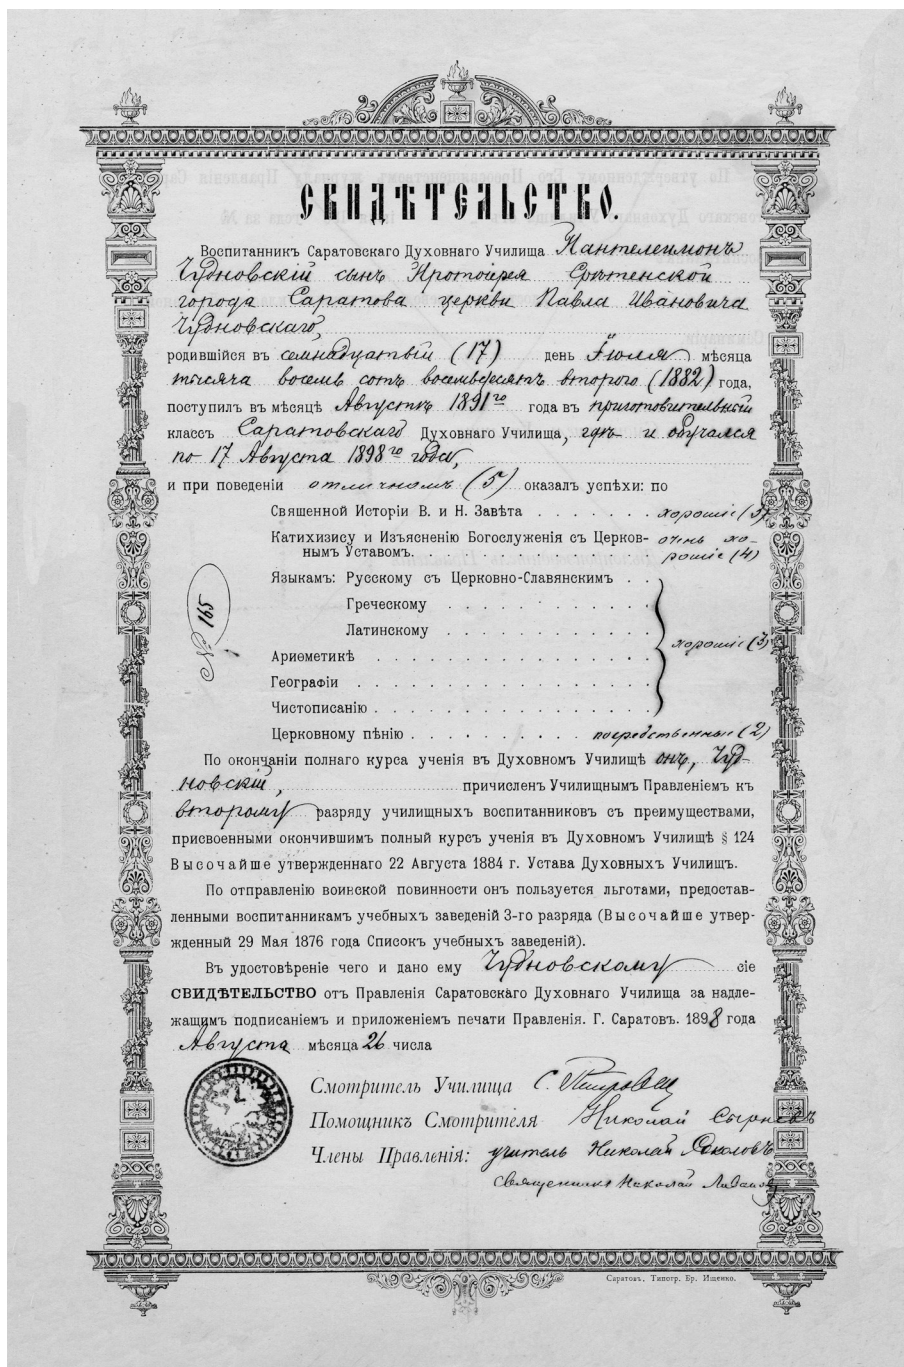 СВИДѢТЕЛЬСТВО.
Воспитанникъ Саратовскаго Духовнаго Училища Пантелеимонъ
Чудновскій сынъ Протоіерея Срѣтенской
города Саратова церкви Павла Ивановича
Чудновскаго,
родившійся въ семнадцатый (17) день Іюля мѣсяца
тысяча восемь сотъ восемьдесятъ второго (1882) года,
поступилъ въ мѣсяцѣ Августѣ 1891го года въ приготовительный
классъ Саратовскаго Духовнаго Училища, гдѣ и обучался
по 17 Августа 1898го года,
и при поведеніи отличномъ (5) оказалъ успѣхи: по
Священной Исторіи В. и Н. Завѣта . . . . . . . хорошіе (3)
Катихизису и Изъясненію Богослуженія съ Церков- очень хо-
нымъ Уставомъ. . . . . . . . . . . . рошіе (4)
Языкамъ: Русскому съ Церковно-Славянскимъ . .
Греческому . . . . . . . . . .
Латинскому . . . . . . . . . .
хорошіе (3)
Ариѳметикѣ . . . . . . . . . . . . . .
Географіи . . . . . . . . . . . . . . .
Чистописанію . . . . . . . . . . . . . .
Церковному пѣнію . . . . . . . . . . посредственные (2)
№ 591
По окончаніи полнаго курса ученія въ Духовномъ Училищѣ онъ, Чуд-
новскій, причисленъ Училищнымъ Правленіемъ къ
второму разряду училищныхъ воспитанниковъ съ преимуществами,
присвоенными окончившимъ полный курсъ ученія въ Духовномъ Училищѣ § 124
Высочайше утвержденнаго 22 Августа 1884 г. Устава Духовныхъ Училищъ.
По отправленію воинской повинности онъ пользуется льготами, предостав-
ленными воспитанникамъ учебныхъ заведеній 3-го разряда (Высочайше утвер-
жденный 29 Мая 1876 года Списокъ учебныхъ заведеній).
Въ удостовѣреніе чего и дано ему Чудновскому сіе
СВИДѢТЕЛЬСТВО отъ Правленія Саратовскаго Духовнаго Училища за надле-
жащимъ подписаніемъ и приложеніемъ печати Правленія. Г. Саратовъ. 1898 года
Августа мѣсяца 26 числа
Смотритель Училища С.
Помощникъ Смотрителя Николай
Члены Правленія: учитель Николай Соколовъ
Священникъ Николай
Саратовъ, Типогр. Бр. Ищенко.